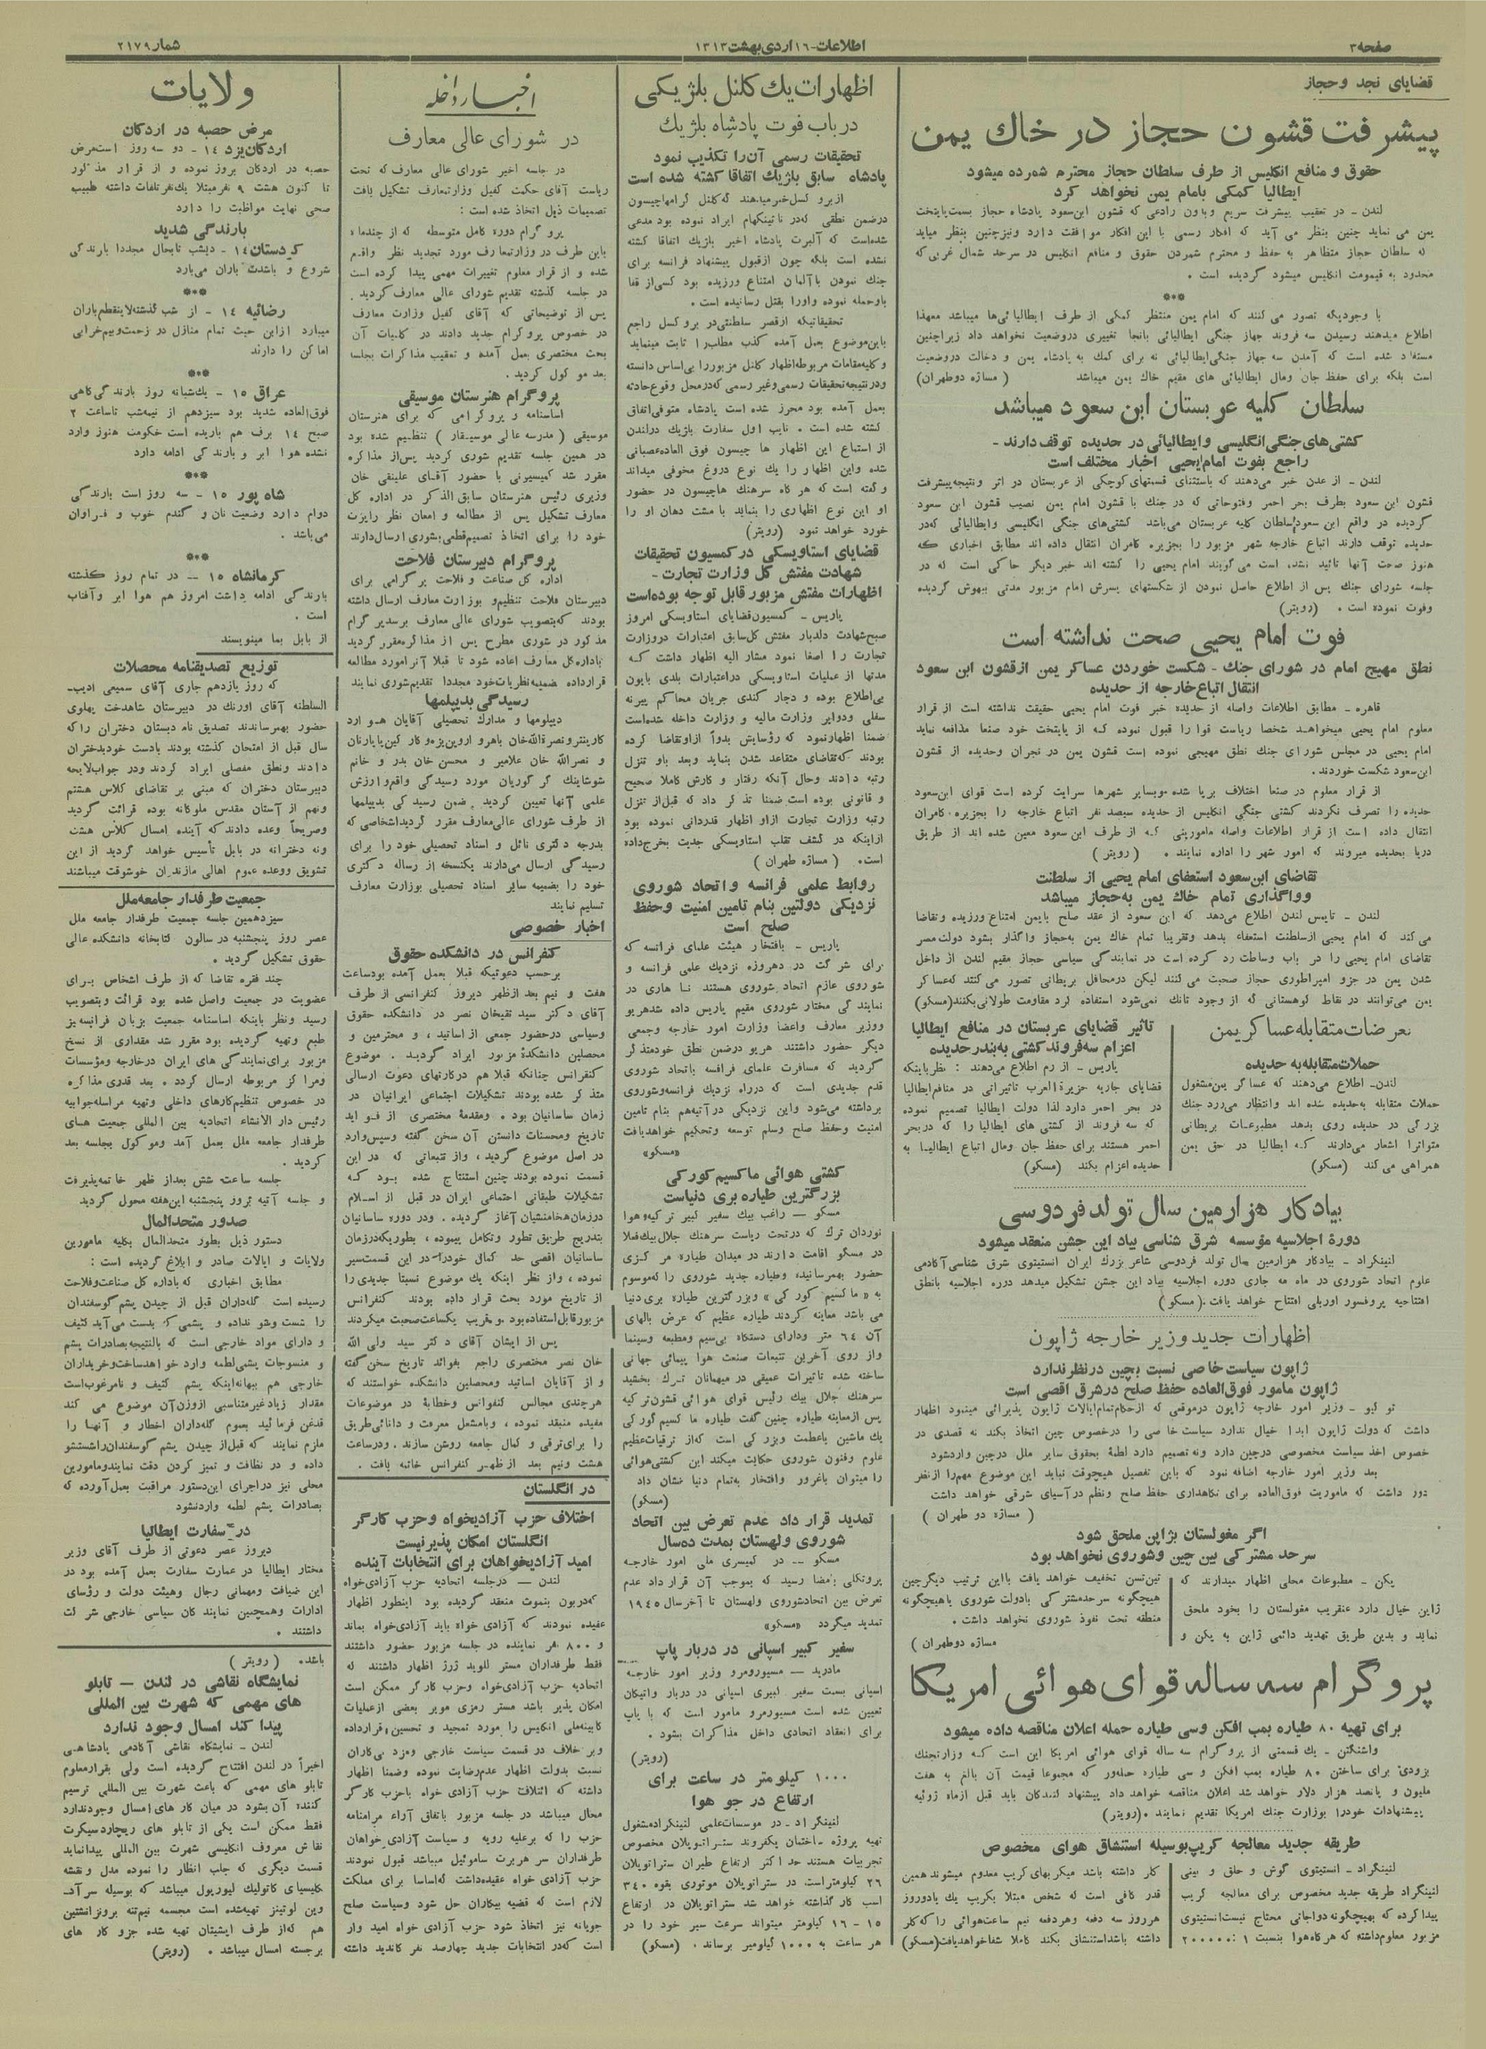 صفحه ۳
اطلاعات-۱۶ اردی بهشت ۱۳۱۳
شماره ۲۱۷۹
قضایای نجد و حجاز
پیشرفت قشون حجاز در خاك یمن
حقوق و منافع انگلیس از طرف سلطان حجاز محترم شمرده میشود
ایطالیا کمکی بامام یمن نخواهد کرد
لندن - در تعقیب پیشرفت سریع و بدون رادعی که قشون ابن‌سعود پادشاه حجاز بسمت پایتخت
یمن می نماید چنین بنظر می آید که افکار رسمی با این افکار موافقت دارد و نیز چنین بنظر میاید
که سلطان حجاز متظاهر به حفظ و محترم شمردن حقوق و منافع انگلیس در سرحد شمال غربی که
محدود به قیمومت انگلیس میشود گردیده است .
***
با وجودیکه تصور می کنند که امام یمن منتظر کمکی از طرف ایطالیائی‌ها میباشد معهذا
اطلاع میدهند رسیدن سه فروند جهاز جنگی ایطالیائی بانجا تغییری دروضعیت نخواهد داد زیرا چنین
مستفاد شده است که آمدن سه جهاز جنگی ایطالیائی نه برای کمك به پادشاه یمن و دخالت دروضعیت
است بلکه برای حفظ جان ومال ایطالیائی های مقیم خاك یمن میباشد ( مساژه دوطهران )
سلطان کلیه عربستان ابن سعود میباشد
کشتی‌های جنگی انگلیسی و ایطالیائی در حدیده توقف دارند -
راجع بفوت امام‌یحیی اخبار مختلف است
لندن - از عدن خبر می‌دهند که باستثنای قسمتهای کوچکی از عربستان در اثر و نتیجه پیشرفت
قشون ابن سعود بطرف بحر احمر وفتوحاتی که در جنك با قشون امام یمن نصیب قشون ابن سعود
گردیده در واقع ابن سعود سلطان کلیه عربستان می‌باشد کشتی‌های جنگی انگلیسی و ایطالیائی که‌در
حدیده توقف دارند اتباع خارجه شهر مزبور را بجزیره کامران انتقال داده اند مطابق اخباری که
هنوز صحت آنها تائید نشده است می‌گویند امام یحیی را کشته اند خبر دیگر حاکی است که در
جلسه شورای جنك پس از اطلاع حاصل نمودن از شکستهای پسرش امام مزبور مدتی بیهوش گردیده
وفوت نموده است . (رویتر)
فوت امام یحیی صحت نداشته است
نطق مهیج امام در شورای جنك - شکست خوردن عساکر یمن از قشون ابن سعود
انتقال اتباع خارجه از حدیده
قاهره - مطابق اطلاعات واصله از حدیده خبر فوت امام یحیی حقیقت نداشته است از قرار
معلوم امام یحیی میخواهد شخصا ریاست قوا را قبول نموده که از پایتخت خود صنعا مدافعه نماید
امام یحیی در مجلس شورای جنك نطق مهیجی نموده است قشون یمن در نجران وحدیده از قشون
ابن‌سعود شکست خوردند.
از قرار معلوم در صنعا اختلاف برپا شده وبسایر شهرها سرایت کرده است قوای ابن‌سعود
حدیده را تصرف نکردند کشتی جنگی انگلیس از حدیده سیصد نفر اتباع خارجه را بجزیره کامران
انتقال داده است از قرار اطلاعات واصله مامورینی که از طرف ابن سعود معین شده اند از طریق
دریا بحدیده میروند که امور شهر را اداره نمایند . ( رویتر )
تقاضای ابن‌سعود استعفای امام یحیی از سلطنت
و واگذاری تمام خاك یمن به‌حجاز میباشد
لندن - تایمس لندن اطلاع می‌دهد که ابن سعود از عقد صلح بایمن امتناع ورزیده وتقاضا
می‌کند که امام یحیی ازسلطنت استعفاء بدهد وتقریبا تمام خاك یمن به‌حجاز واگذار بشود دولت‌مصر
تقاضای امام یحیی را در باب وساطت رد کرده است در نمایندگی سیاسی حجاز مقیم لندن از داخل
شدن یمن در جزو امپراطوری حجاز صحبت می کنند لیکن درمحافل بریطانی تصور می‌کنند که‌عساکر
یمن می‌توانند در نقاط کوهستانی که از وجود تانك نمی‌شود استفاده کرد مقاومت طولانی‌بکنند(مسکو)
تعرضات متقابله عساکر یمن
حملات متقابله به حدیده
لندن- اطلاع می‌دهند که عساکر یمن‌مشغول
حملات متقابله به‌حدیده شده اند وانتظار می‌رود جنك
بزرگی در حدیده روی بدهد مطبوعات بریطانی
متواترا اشعار می‌دارند که ایطالیا در حق یمن
همراهی می کند (مسکو)
تاثیر قضایای عربستان در منافع ایطالیا
اعزام سه‌فروند کشتی به‌بندر حدیده
پاریس - از رم اطلاع می‌دهند : نظر باینکه
قضایای جاریه جزیرةالعرب تاثیراتی در منافع‌ایطالیا
در بحر احمر دارد لذا دولت ایطالیا تصمیم نموده
که سه فروند از کشتی های ایطالیا را که در بحر
احمر هستند برای حفظ جان ومال اتباع ایطالیا به
حدیده اعزام بکند (مسکو)
بیادکار هزارمین سال تولد فردوسی
دورهٔ اجلاسیه مؤسسه شرق شناسی بیاد این جشن منعقد میشود
لنینگراد - بیادکار هزارمین سال تولد فردوسی شاعر بزرك ایران انستیتوی شرق شناسی آکادمی
علوم اتحاد شوروی در ماه مه جاری دوره اجلاسیه بیاد این جشن تشکیل میدهد دوره اجلاسیه بانطق
افتتاحیه پروفسور اوربلی افتتاح خواهد یافت.(مسکو)
اظهارات جدید وزیر خارجه ژاپون
ژاپون سیاست خاصی نسبت بچین درنظر ندارد
ژاپون مامور فوق‌العاده حفظ صلح درشرق اقصی است
تو کیو - وزیر امور خارجه ژاپون درموقعی که ازحکام‌تمام‌ایالات ژاپون پذیرائی مینمود اظهار
داشت که‌دولت ژاپون ابدا خیال ندارد سیاست خاصی را درخصوص چین اتخاذ بکند نه قصدی در
خصوص اخذ سیاست مخصوصی درچین دارد ونه‌تصمیم دارد لطمهٔ بحقوق سایر ملل درچین واردشود
بعد وزیر امور خارجه اضافه نمود که باین تفصیل هیچوقت نباید این موضوع مهم‌را ازنظر
دور داشت که ماموریت فوق‌العاده برای نگاهداری حفظ صلح ونظم درآسیای شرقی خواهد داشت
( مساژه دو طهران )
اگر مغولستان بژاپن ملحق شود
سرحد مشترکی بین چین وشوروی نخواهد بود
پکن - مطبوعات محلی اظهار میدارند که
ژاپن خیال دارد عنقریب مغولستان را بخود ملحق
نماید و بدین طریق تهدید دائمی ژاپن به پکن و
تین‌تسن تخفیف خواهد یافت بااین ترتیب دیگرچین
هیچگونه سرحدمشترکی بادولت شوروی یاهیچگونه
منطقه تحت نفوذ شوروی نخواهد داشت.
مساژه دوطهران )
پروگرام سه ساله قوای هوائی امریکا
برای تهیه ۸۰ طیاره بمب افکن وسی طیاره حمله اعلان مناقصه داده میشود
واشنگتن - یك قسمتی از پروگرام سه ساله قوای هوائی امریکا این است که وزارتجنك
بزودی برای ساختن ۸۰ طیاره بمب افکن و سی طیاره حمله‌ور که مجموعا قیمت آن بالغ به هفت
ملیون و پانصد هزار دلار خواهد شد اعلان مناقصه خواهد داد پیشنهاد کنندگان باید قبل ازماه ژوئیه
پیشنهادات خودرا بوزارت جنك امریکا تقدیم نمایند .(رویتر)
طریقه جدید معالجه کریپ‌بوسیله استنشاق هوای مخصوص
لنینگراد - انستیتوی گوش و حلق و بینی
لنینگراد طریقه جدید مخصوص برای معالجه کریپ
پیداکرده که بهیچگونه دواجاتی محتاج نیست‌انستیتوی
مزبور معلوم‌داشته که هرگاه‌هوا بنسبت ۱ : ۲۰۰۰۰۰
کلر داشته باشد میکربهای کریپ معدوم میشوند همین
قدر کافی است که شخص مبتلا بکریپ یك یادوروز
هرروز سه دفعه وهردفعه نیم ساعت‌هوائی را که‌کلر
داشته باشداستنشاق بکند کاملا شفاخواهدیافت(مسکو)
اظهارات یك کلنل بلژیکی
در باب فوت پادشاه بلژیك
تحقیقات رسمی آن را تکذیب نمود
پادشاه سابق بلژیك اتفاقا کشته شده است
ازبروکسل‌خبرمیدهند که‌کلنل گراهاچیسون
درضمن نطقی که‌در ناتینگهام ایراد نموده بود مدعی
شده‌است که آلبرت پادشاه اخیر بلژیك اتفاقا کشته
نشده است بلکه چون ازقبول پیشنهاد فرانسه برای
جنك نمودن باآلمان امتناع ورزیده بود کسی‌از قفا
باوحمله نموده واورا بقتل رسانیده است .
تحقیقاتیکه ازقصر سلطنتی‌در بروکسل راجع
باین‌موضوع بعمل آمده کذب مطلب‌را ثابت مینماید
وکلیه‌مقامات مربوطه‌اظهار کلنل مزبوررا بی‌اساس دانسته
ودرنتیجه‌تحقیقات رسمی‌وغیر رسمی که‌درمحل وقوع‌حادثه
بعمل آمده بود محرز شده است پادشاه متوفی‌اتفاق
کشته شده است . نایب اول سفارت بلژیك درلندن
از استماع این اظهار ها چیسون فوق العاده‌عصبانی
شده واین اظهار را یك نوع دروغ مخوفی میداند
و گفته است که هر گاه سرهنك هاچیسون در حضور
او این نوع اظهاری را بنماید با مشت دهان او را
خورد خواهد نمود (رویتر)
قضایای استاویسکی در کمسیون تحقیقات
شهادت مفتش کل وزارت تجارت -
اظهارات مفتش مزبور قابل توجه بوده‌است
پاریس - کمسیون‌قضایای استاویسکی امروز
صبح‌شهادت دلدبار مفتش کل‌سابق اعتبارات دروزارت
تجارت را اصغا نمود مشار الیه اظهار داشت که
مدتها از عملیات استاویسکی دراعتبارات بلدی بایون
بی‌اطلاع بوده و دچار کندی جریان محاکم پیرنه
سفلی ودوایر وزارت مالیه و وزارت داخله شده‌است
ضمنا اظهارنمود که رؤسایش بدواً ازاوتقاضا کرده
بودند که‌تقاضای متقاعد شدن بنماید وبعد باو تنزل
رتبه دادند وحال آنکه رفتار و کارش کاملا صحیح
و قانونی بوده است ضمنا تذکر داد که قبل‌از تنزل
رتبه وزارت تجارت ازاو اظهار قدردانی نموده بود
ازاینکه در کشف تقلب استاویسکی جدیت بخرج‌داده
است. ( مساژه طهران )
روابط علمی فرانسه و اتحاد شوروی
نزدیکی دولتین بنام تامین امنیت وحفظ
صلح است
پاریس - بافتخار هیئت علمای فرانسه که
برای شرکت در دهروزه نزدیك علمی فرانسه و
شوروی عازم اتحاد شوروی هستند نـا هاری در
نمایندگی مختار شوروی مقیم پاریس داده شدهریو
ووزیر معارف واعضا وزارت امور خارجه وجمعی
دیگر حضور داشتند هریو درضمن نطق خودمتذکر
گردید که مسافرت علمای فرانسه باتحاد شوروی
قدم جدیدی است که درراه نزدیك فرانسه‌وشوروی
برداشته می‌شود واین نزدیکی درآتیه‌هم بنام تامین
امنیت وحفظ صلح وسلم توسعه وتحکیم خواهدیافت
«مسکو»
کشتی هوائی ماکسیم گورکی
بزرگترین طیاره بری دنیاست
مسکو - راغب بیك سفیر کبیر ترکیه‌وهوا
نوردان ترك که درتحت ریاست سرهنك جلال‌بیك‌فعلا
در مسکو اقامت دارند در میدان طیاره مرکزی
حضور بهمرسانیده وطیاره جدید شوروی را که‌موسوم
به « ماکسیم گورکی » وبزرگترین طیاره بری‌دنیا
می باشد معاینه کردند طیاره عظیم که عرض بالهای
آن ۶۴ متر ودارای دستگاه بی‌سیم ومطبعه وسینما
واز روی آخرین تتبعات صنعت هوا پیمائی جهانی
ساخته شده تاثیرات عمیقی در میهمانان ترك بخشید
سرهنك جلال بیك رئیس قوای هوائی قشون‌ترکیه
پس ازمعاینه طیاره چنین گفت طیاره ماکسیم گورکی
یك ماشین باعظمت وبزرگی است که‌از ترقیات‌عظیم
علوم وفنون شوروی حکایت میکند این کشتی‌هوائی
را میتوان باغرور وافتخار به‌تمام دنیا نشان داد
(مسکو)
تمدید قرارداد عدم تعرض بین اتحاد
شوروی ولهستان بمدت ده‌سال
مسکو -- در کمیسری ملی امور خارجه
پروتکلی بامضا رسید که بموجب آن قرارداد عدم
تعرض بین اتحادشوروی ولهستان تا آخرسال ۱۹۴۵
تمدید میگردد «مسکو»
سفیر کبیر اسپانی در دربار پاپ
مادرید -- مسیورومرو وزیر امور خارجه
اسپانی بسمت سفیر کبیری اسپانی در دربار واتیکان
تعیین شده است مسیورمرو مامور است که با پاپ
برای انعقاد اتحادی داخل مذاکرات بشود .
(رویتر)
۱۰۰۰ کیلومتر در ساعت برای
ارتفاع در جو هوا
لنینگراد- در موسسات‌علمی لنینگرادمشغول
تهیه پروژه ساختمان یکفروند ستراتوپلان مخصوص
تجربیات هستند حداکثر ارتفاع طیران ستراتوپلان
۲۶ کیلومتراست. در ستراتوپلان موتوری بقوه ۳۴۰
اسب کار گذاشته خواهد شد ستراتوپلان در ارتفاع
۱۵ - ۱۶ کیلومتر میتواند سرعت سیر خود را در
هر ساعت به ۱۰۰۰ کیلومتر برساند . (مسکو)
اخبار داخله
در شورای عالی معارف
در جلسه اخیر شورای عالی معارف که تحت
ریاست آقای حکمت کفیل وزارتمعارف تشکیل یافت
تصمیمات ذیل اتخاذ شده است :
پرو گرام دوره کامل متوسطه که از چندماه
باین طرف در وزارتمعارف مورد تجدید نظر واقع
شده و از قرار معلوم تغییرات مهمی پیدا کرده است
در جلسه گذشته تقدیم شورای عالی معارف گردید .
پس از توضیحاتی که آقای کفیل وزارت معارف
در خصوص پروگرام جدید دادند در کلیات آن
بحث مختصری بعمل آمده و تعقیب مذاکرات بجلسه
بعد موکول گردید .
پروگرام هنرستان موسیقی
اساسنامه و پروگرامی که برای هنرستان
موسیقی ( مدرسه عالی موسیقار ) تنظیم شده بود
در همین جلسه تقدیم شوری گردید پس‌از مذاکره
مقرر شد کمیسیونی با حضور آقای علینقی خان
وزیری رئیس هنرستان سابق‌الذکر در اداره کل
معارف تشکیل پس از مطالعه و امعان نظر راپرت
خود را برای اتخاذ تصمیم‌قطعی‌بشوری‌ارسال‌دارند
پروگرام دبیرستان فلاحت
اداره کل صناعت و فلاحت پرگرامی برای
دبیرستان فلاحت تنظیم‌و بوزارت معارف ارسال داشته
بودند که‌بتصویب شورای عالی معارف برسدپرگرام
مذکور در شوری مطرح پس از مذاکره‌مقرر گردید
باداره‌کل معارف اعاده شود تا قبلا آن‌را مورد مطالعه
قرارداده بضمیمه‌نظریات‌خود مجددا تقدیم‌شوری نمایند
رسیدگی بدیپلمها
دیپلومها و مدارك تحصیلی آقایان هـوارد
کارینتر و نصرةالله‌خان باهر و اروین‌بزو کارکین‌پاپاریان
و نصرالله خان علامیر و محسن خان بدر و خانم
شوشانیك گر گوریان مورد رسیدگی واقع‌وارزش
علمی آنها تعیین گردید . ضمن رسیدگی بدیپلمها
از طرف شورای عالی‌معارف مقرر گردیداشخاصی که
بدرجه دکتری نائل و اسناد تحصیلی خود را برای
رسیدگی ارسال می‌دارند یکنسخه از رساله دکتری
خود را بضمیمه سایر اسناد تحصیلی بوزارت معارف
تسلیم نمایند
اخبار خصوصی
کنفرانس در دانشکده حقوق
برحسب دعوتیکه قبلا بعمل آمده بودساعت
هفت و نیم بعدازظهر دیروز کنفرانسی از طرف
آقای دکتر سید تقیخان نصر در دانشکده حقوق
وسیاسی درحضور جمعی از اساتید ، و محترمین و
محصلین دانشکدهٔ مزبور ایراد گردید . موضوع
کنفرانس چنانکه قبلا هم درکارتهای دعوت ارسالی
متذکر شده بودند تشکیلات اجتماعی ایرانیان در
زمان ساسانیان بود . ومقدمهٔ مختصری از فواید
تاریخ ومحسنات دانستن آن سخن گفته وسپس‌وارد
در اصل موضوع گردید ، واز تتبعاتی که در این
قسمت نموده بودند چنین استنتاج شده بود که
تشکیلات طبقاتی اجتماعی ایران در قبل از اسلام
درزمان‌هخامنشیان آغاز گردیده . ودر دوره ساسانیان
بتدریج طریق تطور وتکامل پیموده ، بطوریکه‌درزمان
ساسانیان اقصی حد کمال خودرا در این قسمت‌سیر
نموده ، واز نظر اینکه یك موضوع نسبتا جدیدی را
از تاریخ مورد بحث قرار داده بودند کنفرانس
مزبورقابل‌استفاده‌بود . وقریب یکساعت‌صحبت میکردند
پس از ایشان آقای دکتر سید ولی الله
خان نصر مختصری راجع بفوائد تاریخ سخن‌گفته
و از آقایان اساتید ومحصلین دانشکده خواستند که
هرچندی مجالس کنفرانس وخطابهٔ در موضوعات
مفیده منعقد نموده ، وبامشعل معرفت و دانائی‌طریق
را برای‌ترقی و کمال جامعه روشن سازند . ودرساعت
هشت ونیم بعد ازظهر کنفرانس خاتمه یافت .
در انگلستان
اختلاف حزب آزادیخواه وحزب کارگر
انگلستان امکان پذیر نیست
امید آزادیخواهان برای انتخابات آینده
لندن -- درجلسه اتحادیه حزب آزادی‌خواه
که‌دربون بموت منعقد گردیده بود اینطور اظهار
عقیده نمودند که آزادی خواه باید آزادی‌خواه بماند
و ۸۰۰ نفر نماینده در جلسه مزبور حضور داشتند
فقط طرفداران مستر للوید ژرژ اظهار داشتند که
اتحادیه حزب آزادی‌خواه وحزب کارگر ممکن است
امکان پذیر باشد مستر رمزی مویر بعضی ازعملیات
کابینه‌ملی انگلیس را مورد تمجید و تحسین‌قرارداده
وبر خلاف در قسمت سیاست خارجی ومزد بی‌کاران
نسبت بدولت اظهار عدم‌رضایت نموده وضمنا اظهار
داشته که ائتلافت حزب آزادی خواه باحزب کارگر
محال میباشد در جلسه مزبور باتفاق آراء مرامنامه
حزب را که برعلیه رویه و سیاست آزادی خواهان
طرفداران سر هربرت ساموئیل میباشد قبول نمودند
حزب آزادی خواه عقیده‌داشت که‌اساسا برای مملکت
لازم است که قضیه بیکاران حل شود وسیاست صلح
جویانه نیز اتخاذ شود حزب آزادی خواه امید وار
است که‌در انتخابات جدید چهارصد نفر کاندید داشته
ولایات
مرض حصبه در اردکان
اردکان‌یزد ۱۴ - دو سه روز است‌مرض
حصبه در اردکان بروز نموده و از قرار مذکور
تا کنون هشت ۹ نفرمبتلا یك‌نفر تلفات داشته طبیب
صحی نهایت مواظبت را دارد
بارندگی شدید
کردستان ۱۴ - دیشب تابحال مجددا بارندگی
شروع و باشدت باران می‌بارد
***
رضائیه ۱۴ - از شب گذشته‌لاینقطع‌باران
میبارد ازاین حیث تمام منازل در زحمت‌وبیم‌خرابی
اماکن را دارند
***
عراق ۱۵ - یك‌شبانه روز بارندگی‌کاهی
فوق‌العاده شدید بود سیزدهم از نیمه‌شب تاساعت ۲
صبح ۱۴ برف هم باریده است حکومت هنوز وارد
نشده هوا ابر و بارندگی ادامه دارد
***
شاه پور ۱۵ - سه روز است بارندگی
دوام دارد وضعیت نان و گندم خوب و فراوان
می‌باشد .
***
کرمانشاه ۱۵ -- در تمام روز گذشته
بارندگی ادامه داشت امروز هم هوا ابر وآفتاب
است .
از بابل بما مینویسند
توزیع تصدیقنامه محصلات
که روز یازدهم جاری آقای سمیعی ادیب-
السلطنه آقای اورنك در دبیرستان شاهدخت پهلوی
حضور بهمرساندند تصدیق نامه دبستان دختران را که
سال قبل از امتحان گذشته بودند بادست خودبدختران
دادند ونطق مفصلی ایراد کردند ودر جواب‌لایحه
دبیرستان دختران که مبنی بر تقاضای کلاس هشتم
ونهم از آستان مقدس ملوکانه بوده قرائت گردید
وصریحاً وعده دادند که آینده امسال کلاس هشت
ونه دخترانه در بابل تأسیس خواهد گردید از این
تشویق ووعده عموم اهالی مازندران خوشوقت میباشند
جمعیت طرفدار جامعه‌ملل
سیزدهمین جلسه جمعیت طرفدار جامعه ملل
عصر روز پنجشنبه در سالون کتابخانه دانشکده عالی
حقوق تشکیل گردید .
چند فقره تقاضا که از طرف اشخاص برای
عضویت در جمعیت واصل شده بود قرائت وبتصویب
رسید ونظر باینکه اساسنامه جمعیت بزبان فرانسه‌نیز
طبع وتهیه گردیده بود مقرر شد مقداری از نسخ
مزبور برای‌نمایندگی های ایران درخارجه ومؤسسات
ومراکز مربوطه ارسال گردد . بعد قدری مذاکره
در خصوص تنظیم‌کارهای داخلی وتهیه مراسله‌جوابیه
رئیس دارالانشاء اتحادیه بین المللی جمعیت های
طرفدار جامعه ملل بعمل آمد وموکول بجلسه بعد
گردید .
جلسه ساعت شش بعداز ظهر خاتمه‌پذیرفت
و جلسه آتیه بروز پنجشنبه این‌هفته محول گردید
صدور متحدالمال
دستور ذیل بطور متحدالمال بکلیه مامورین
ولایات و ایالات صادر و ابلاغ گردیده است :
مطابق اخباری که باداره کل صناعت‌وفلاحت
رسیده است گله‌داران قبل از چیدن پشم گوسفندان
را شست وشو نداده و پشمی که بدست می‌آید کثیف
و دارای مواد خارجی است که بالنتیجه‌بصادرات پشم
و منسوجات پشمی‌لطمه وارد خواهدساخت‌وخریداران
خارجی هم ببهانه‌اینکه پشم کثیف و نامرغوب‌است
مقدار زیاد غیرمتناسبی ازوزن‌آن موضوع می کند
قدغن فرمائید بعموم گله‌داران اخطار و آنها را
ملزم نمایند که قبل‌از چیدن پشم گوسفندان‌راشستشو
داده و در نظافت و تمیز کردن دقت نمایندومامورین
محلی نیز دراجرای این‌دستور مراقبت بعمل‌آورده که
بصادرات پشم لطمه واردنشود
در سفارت ایطالیا
دیروز عصر دعوتی از طرف آقای وزیر
مختار ایطالیا در عمارت سفارت بعمل آمده بود در
این ضیافت ومهمانی رجال وهیئت دولت و رؤسای
ادارات وهمچنین نمایندگان سیاسی خارجی شرکت
داشتند .
باشد. ( رویتر )
نمایشگاه نقاشی در لندن -- تابلو
های مهمی که شهرت بین المللی
پیدا کند امسال وجود ندارد
لندن - نمایشگاه نقاشی آکادمی پادشاهی
اخیراً در لندن افتتاح گردیده است ولی بقرارمعلوم
تابلو های مهمی که باعث شهرت بین المللی ترسیم
کننده آن بشود در میان کار های امسال وجودندارد
فقط ممکن است یکی از تابلو های ریچاردسیکرت
نقاش معروف انگلیسی شهرت بین المللی پیدانماید
قسمت دیگری که جلب انظار را نموده مدل و نقشه
کلیسیای کاتولیك لیورپول میباشد که بوسیله سر آف
وین لوتینز تهیه‌شده است مجسمه نیم‌تنه برونز انشتین
هم که‌از طرف اپشتان تهیه شده جزو کار های
برجسته امسال میباشد . (رویتر)